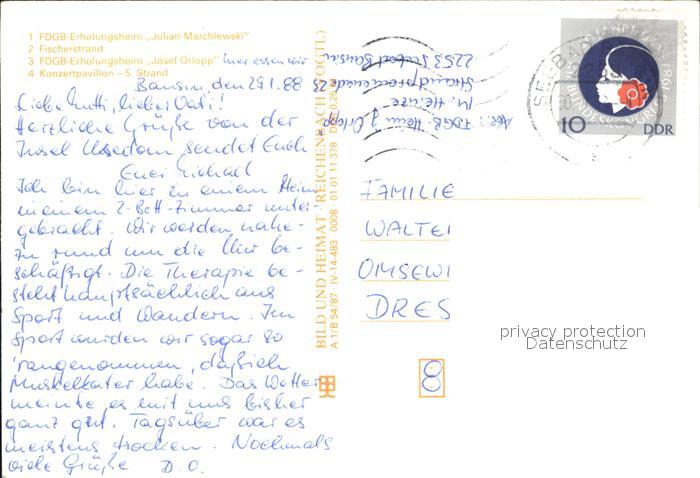 1 FDGB-Erholungsheim „Julian Marchlewski"
2 Fischerstrand
3 FDGB-Erholungsheim „Josef Orlopp" hier essen wir
4 Konzertpavillon – 5 Strand
Bansin, den 29.1.88
Liebe Mutti, lieber Vati!
Herzliche Grüße von der
Insel Usedom sendet Euch
Euer Michael
Ich bin hier zu einem Heim
in einem 2-Bett-Zimmer unter-
gebracht. Wir werden nahe-
zu rund um die Uhr be-
schäftigt. Die Therapie be-
steht hauptsächlich aus
Sport und Wandern. Im
Sport wurden wir sogar so
rangenommen, daß ich
Muskelkater habe. Das Wetter
meinte es mit uns bisher
ganz gut. Tagsüber war es
meistens trocken. Nochmals
viele Grüße D. O.
BILD UND HEIMAT REICHENBACH (VOGTL)
A 1/B 54/87 IV-14-483 0008 01 01 11 378
Abs.: FDGB-Heim J. Orlopp
M. Heinze
Strandpromenade 25
2253 Seebad Bansin
10
DDR
1987
BUNDESKONGRESS
SEEBAD
FAMILIE
WALTE
OMSEWI
DRES
8
privacy protection
Datenschutz